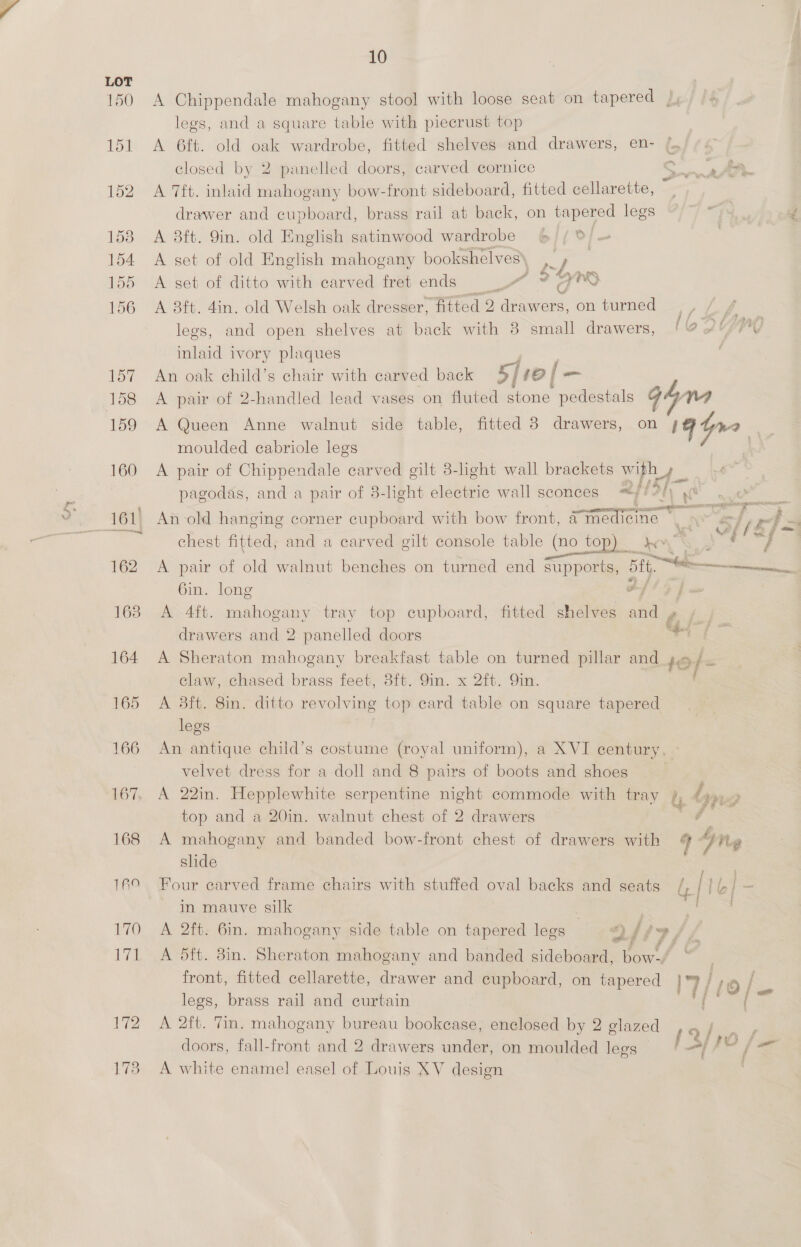 10
LOT
150 A Chippendale mahogany stool with loose seat on tapered
legs, and a square table with piecrust top
151 A 6ft. old oak wardrobe, fitted shelves and drawers, en-
closed by 2 panelled doors, carved cornice
152 A 7ft. inlaid mahogany bow-front sideboard, fitted cellarette,
drawer and cupboard, brass rail at back, on tapered legs
153 A 3ft. 9in. old English satinwood wardrobe
154 A set of old English mahogany bookshelves
155 A set of ditto with carved fret ends
156 A 3ft. 4in. old Welsh oak dresser, fitted 2 drawers, on turned
legs, and open shelves at back with 3 small drawers,
inlaid ivory plaques
157 An oak child's chair with carved back 5/10/-
158 A pair of 2-handled lead vases on fluted stone pedestals 9 gns
159 A Queen Anne walnut side table, fitted 3 drawers, on 19 gns
moulded cabriole legs
160 A pair of Chippendale carved gilt 3-light wall brackets with
pagodas, and a pair of 3-light electric wall sconces
161 An old hanging corner cupboard with bow front, a medicine
chest fitted, and a carved gilt console table (no top)
162 A pair of old walnut benches on turned end supports, 5ft.
6in. long
163 A 4ft. mahogany tray top cupboard, fitted shelves and
drawers and 2 panelled doors
164 A Sheraton mahogany breakfast table on turned pillar and 10/-
claw, chased brass feet, 3ft. 9in. x 2ft. 9in.
165 A 3ft. 8in. ditto revolving top card table on square tapered
legs
166 An antique child's costume (royal uniform), a XVI century,
velvet dress for a doll and 8 pairs of boots and shoes
167 A 22in. Hepplewhite serpentine night commode with tray
top and a 20in. walnut chest of 2 drawers
168 A mahogany and banded bow-front chest of drawers with 9 gns
slide
169 Four carved frame chairs with stuffed oval backs and seats
in mauve silk
170 A 2ft. 6in. mahogany side table on tapered legs
171 A 5ft. 3in. Sheraton mahogany and banded sideboard, bow-
front, fitted cellarette, drawer and cupboard, on tapered 17/10/-
legs, brass rail and curtain
172 A 2ft. 7in. mahogany bureau bookcase, enclosed by 2 glazed
doors, fall-front and 2 drawers under, on moulded legs 13/10/-
173 A white enamel easel of Louis XV design